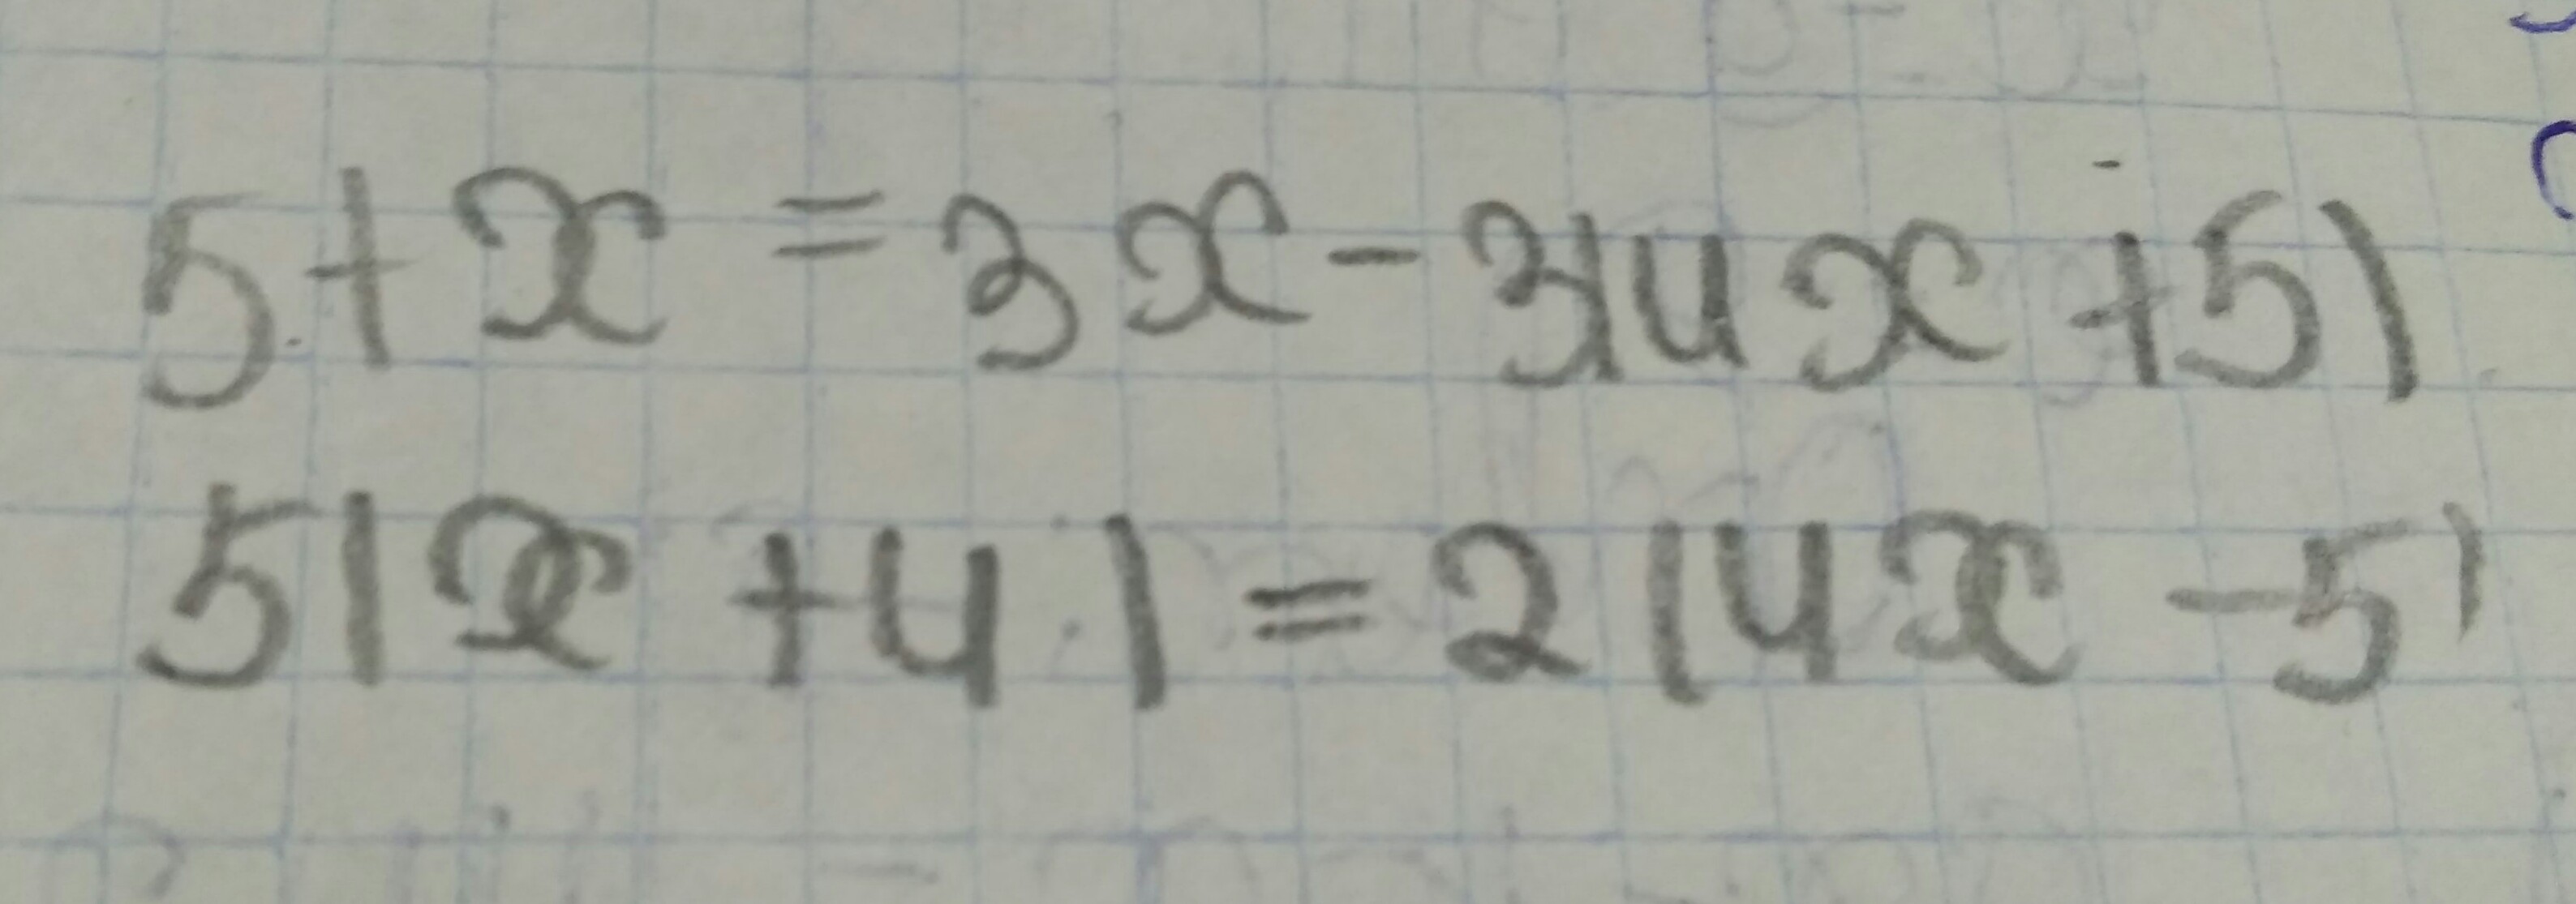 5+x = 3x - 3(4x + 5)
5(x + 4) = 2(4x - 5)